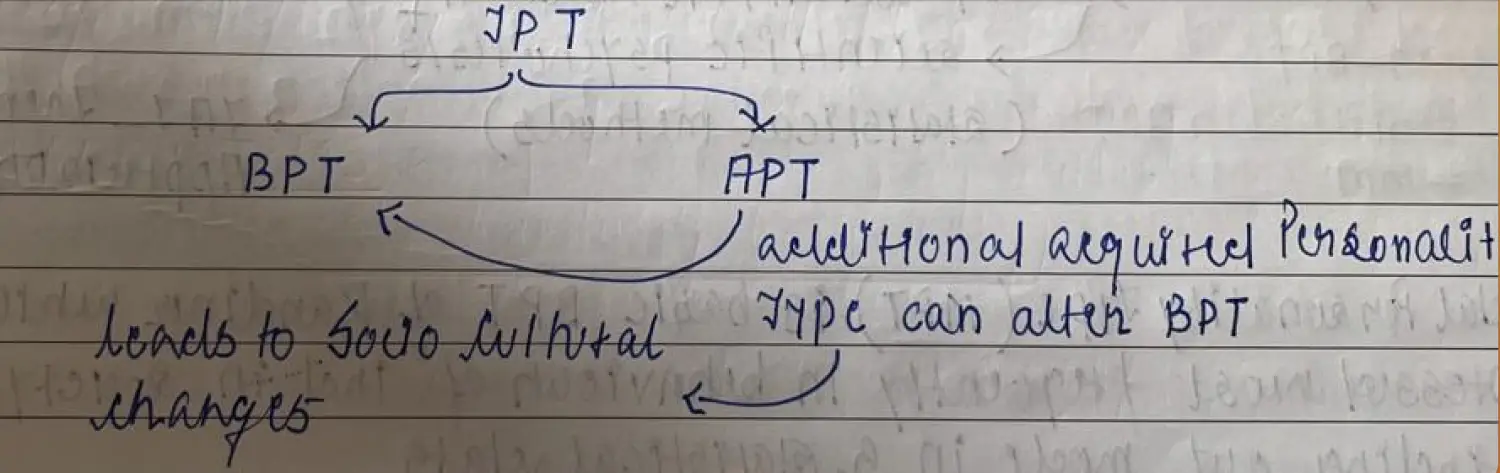 IPT
BPT APT
additional acquired Personalit
leads to Socio Cultural Type can alter BPT
changes